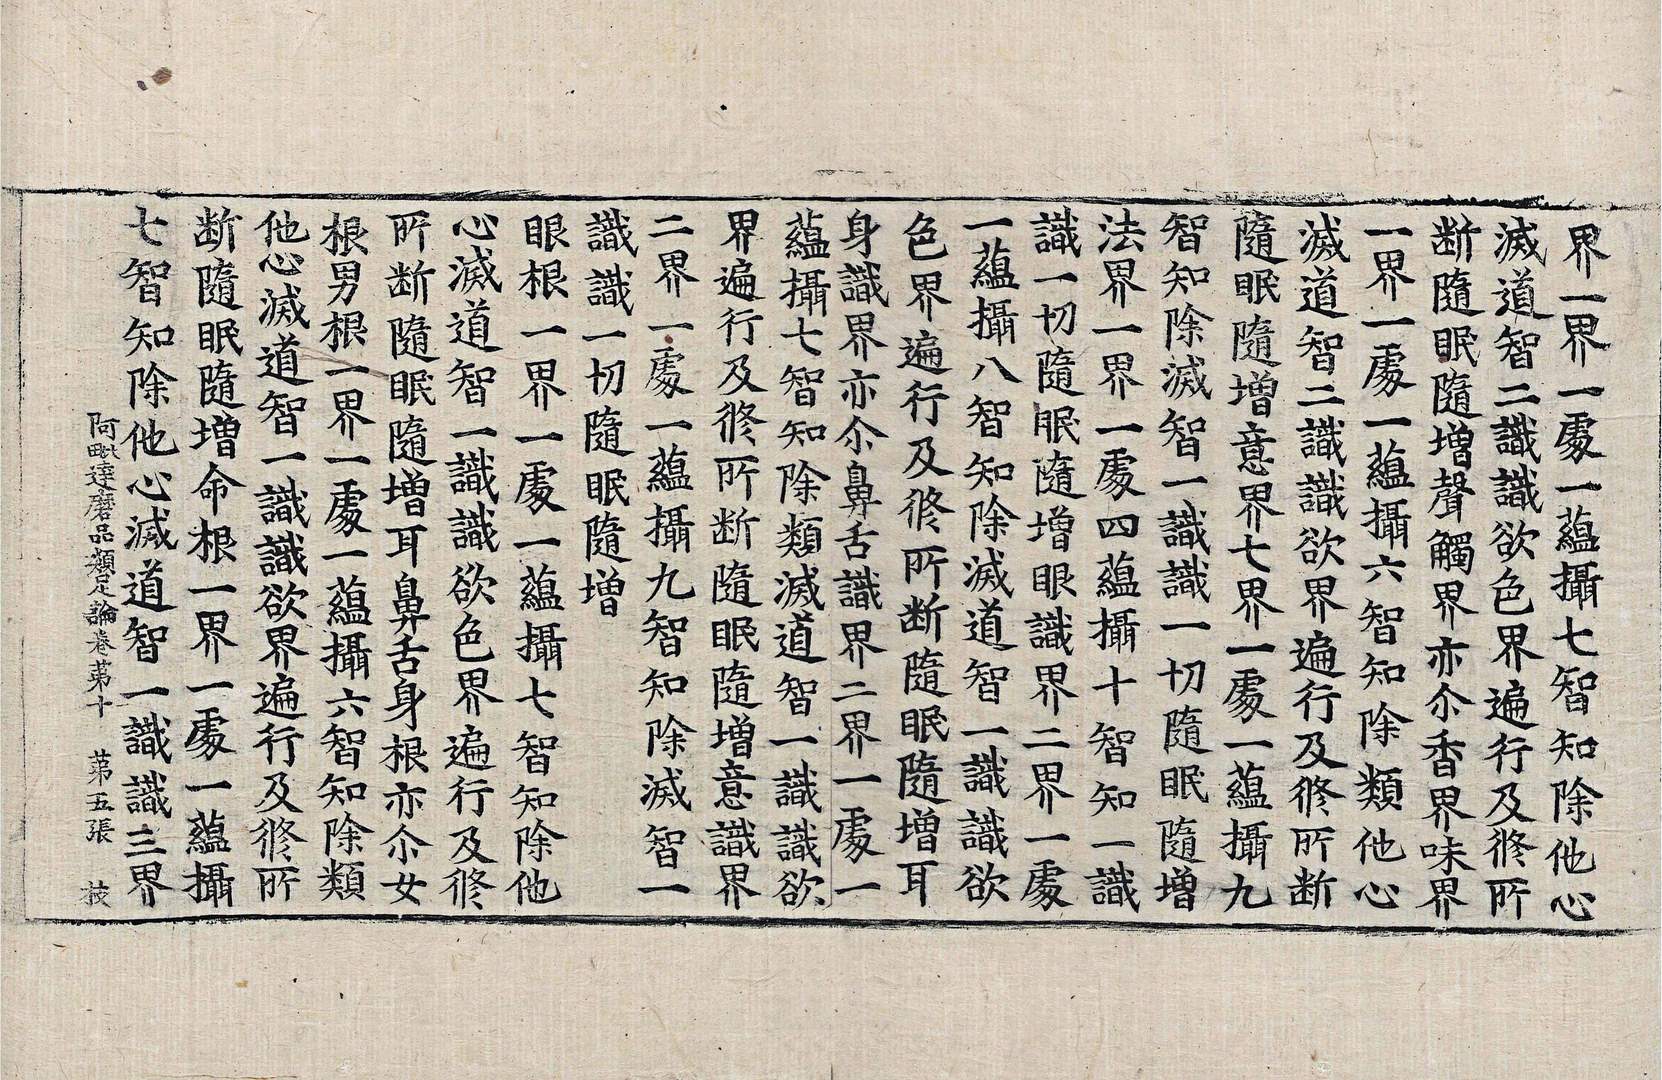 界一界一處一蘊攝七智知除他心
滅道智二識識欲色界遍行及修所
断隨眠隨增聲觸界亦尒香界味界
一界一處一蘊攝六智知除類他心
滅道智二識識欲界遍行及修所断
隨眠隨增意界七界一處一蘊攝九
智知除滅智一識識一切隨眠隨增
法界一界一處四蘊攝十智知一識
識一切隨眠隨增眼識界二界一處
一蘊攝八智知除滅道智一識識欲
色界遍行及修所断隨眠隨增耳
身識界亦尒鼻舌識界二界一處一
蘊攝七智知除類滅道智一識識欲
界遍行及修所断隨眠隨增意識界
二界一處一蘊攝九智知除滅智一
識識一切隨眠隨增
眼根一界一處一蘊攝七智知除他
心滅道智一識識欲色界遍行及修
所断隨眠隨增耳鼻舌身根亦尒女
根男根一界一處一蘊攝六智知除類
他心滅道智一識識欲界遍行及修所
断隨眠隨增命根一界一處一蘊攝
七智知除他心滅道智一識識三界
阿毗達磨品類足論卷苐十 苐五張 枝